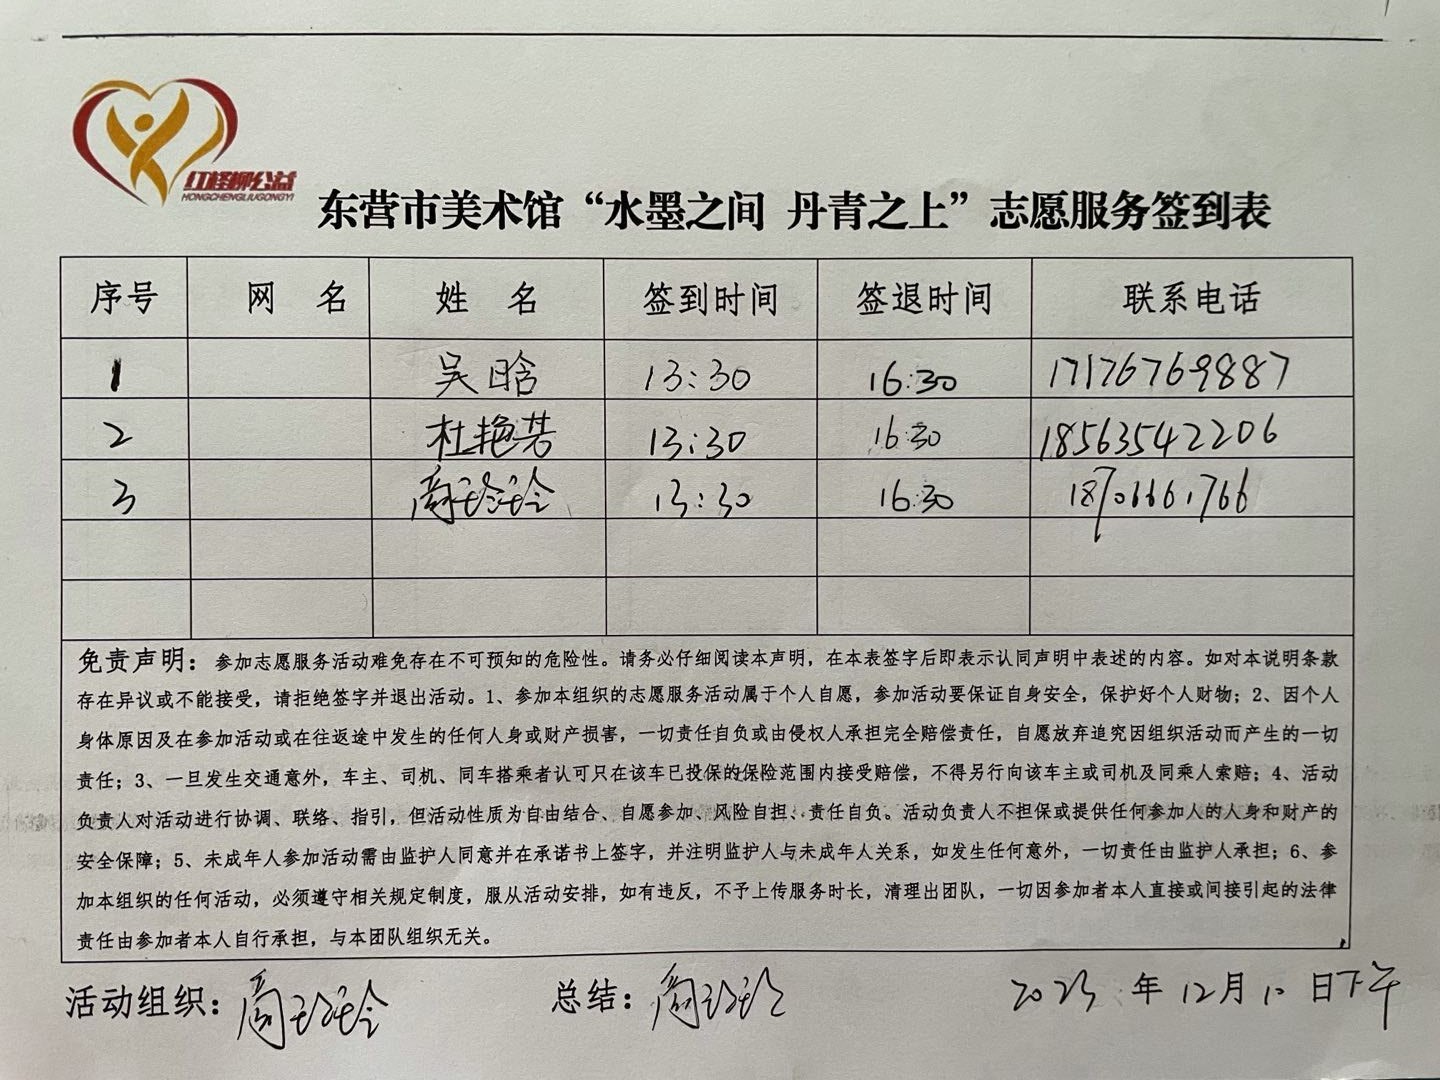 红柽柳公益
HONGCHENGLIUGONGYI
东营市美术馆“水墨之间 丹青之上”志愿服务签到表
序号 网 名 姓 名 签到时间 签退时间 联系电话
1 吴晗 13:30 16:30 17176769887
2 杜艳芳 13:30 16:30 18563542206
3 商玲玲 13:30 16:30 18706661766
免责声明：参加志愿服务活动难免存在不可预知的危险性。请务必仔细阅读本声明，在本表签字后即表示认同声明中表述的内容。如对本说明条款
存在异议或不能接受，请拒绝签字并退出活动。1、参加本组织的志愿服务活动属于个人自愿，参加活动要保证自身安全，保护好个人财物；2、因个人
身体原因及在参加活动或在往返途中发生的任何人身或财产损害，一切责任自负或由侵权人承担完全赔偿责任，自愿放弃追究因组织活动而产生的一切
责任；3、一旦发生交通意外，车主、司机、同车搭乘者认可只在该车已投保的保险范围内接受赔偿，不得另行向该车主或司机及同乘人索赔；4、活动
负责人对活动进行协调、联络、指引，但活动性质为自由结合、自愿参加、风险自担、责任自负。活动负责人不担保或提供任何参加人的人身和财产的
安全保障；5、未成年人参加活动需由监护人同意并在承诺书上签字，并注明监护人与未成年人关系，如发生任何意外，一切责任由监护人承担；6、参
加本组织的任何活动，必须遵守相关规定制度，服从活动安排，如有违反，不予上传服务时长，清理出团队，一切因参加者本人直接或间接引起的法律
责任由参加者本人自行承担，与本团队组织无关。
活动组织：商玲玲 总结：商玲玲 2023 年 12月10 日下午